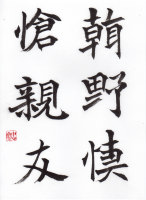 野慎
愴親友